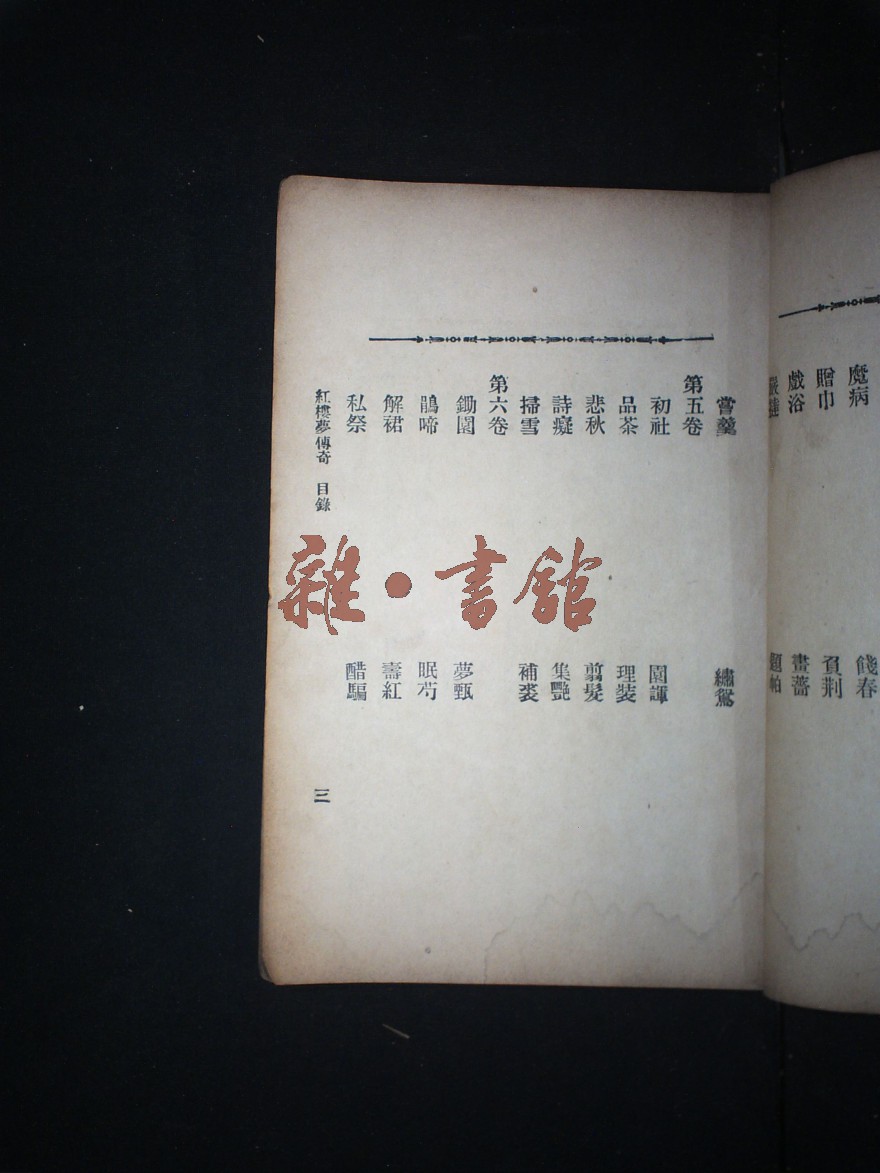 魔病
餞春
贈巾
負荆
戲浴
畫薔
嘗羹
繡鴛
第五卷
初社
園諢
品茶
理装
悲秋
剪髮
詩癡
集艷
掃雪
補裘
第六卷
鋤園
夢甄
鵑啼
眠芍
解裙
壽紅
私祭
醋騙
紅樓夢傳奇 目錄
三
雜·書館